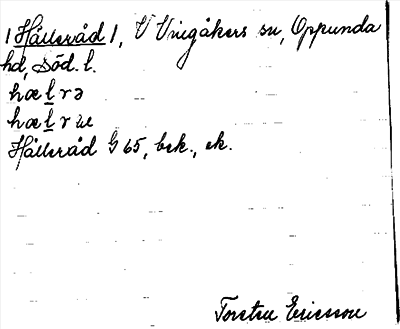 /Hållsråd/, V Vingåkers sn, Oppunda
hd, Söd. l.
hæl̲rə
hæl̲r
Hållsråd G 65, bek., ek.
Torsten Ericsson